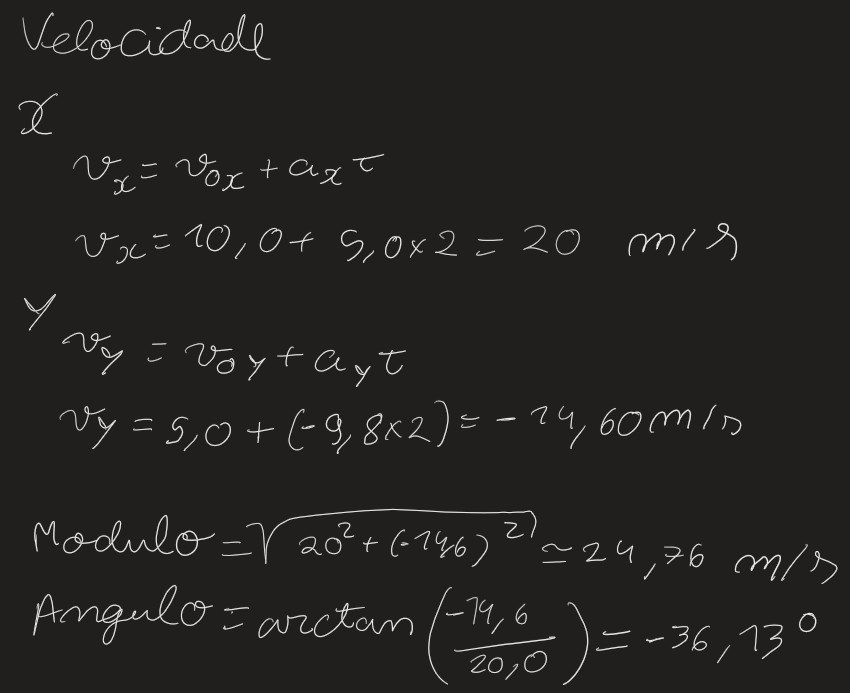 Velocidade
X
vₓ = v₀ₓ + aₓt
vₓ = 10,0 + 5,0 × 2 = 20 m/s
Y
v_y = v₀y + a_y t
v_y = 5,0 + (-9,8×2) = -14,60 m/s
Modulo = √(20² + (-14,6)²) ≃ 24,76 m/s
Angulo = arctan (-14,6/20,0) = -36,13°